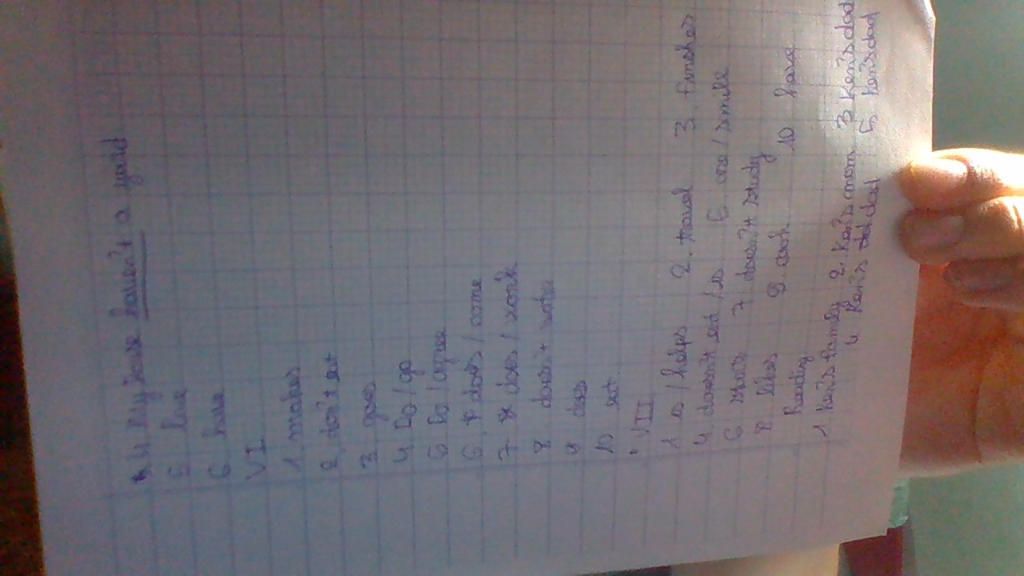 4 My house haven't a yard
5 live
6 have
VI
1 makes
2 don't eat
3 goes
4 Do / go
5 Do / agree
6 does / come
7 does / work
8 doesn't
9 does
10 eat
VII
1 is / helps 2. travel 3. finishes
4 doesn't eat / is 6 are / smile
6 7 doesn't study
8 likes 9 cook 10 have
Reading
1 Ken's family 2. Ken's mom 3 Ken's dad
4 Ken's dad 5 Ken's dad